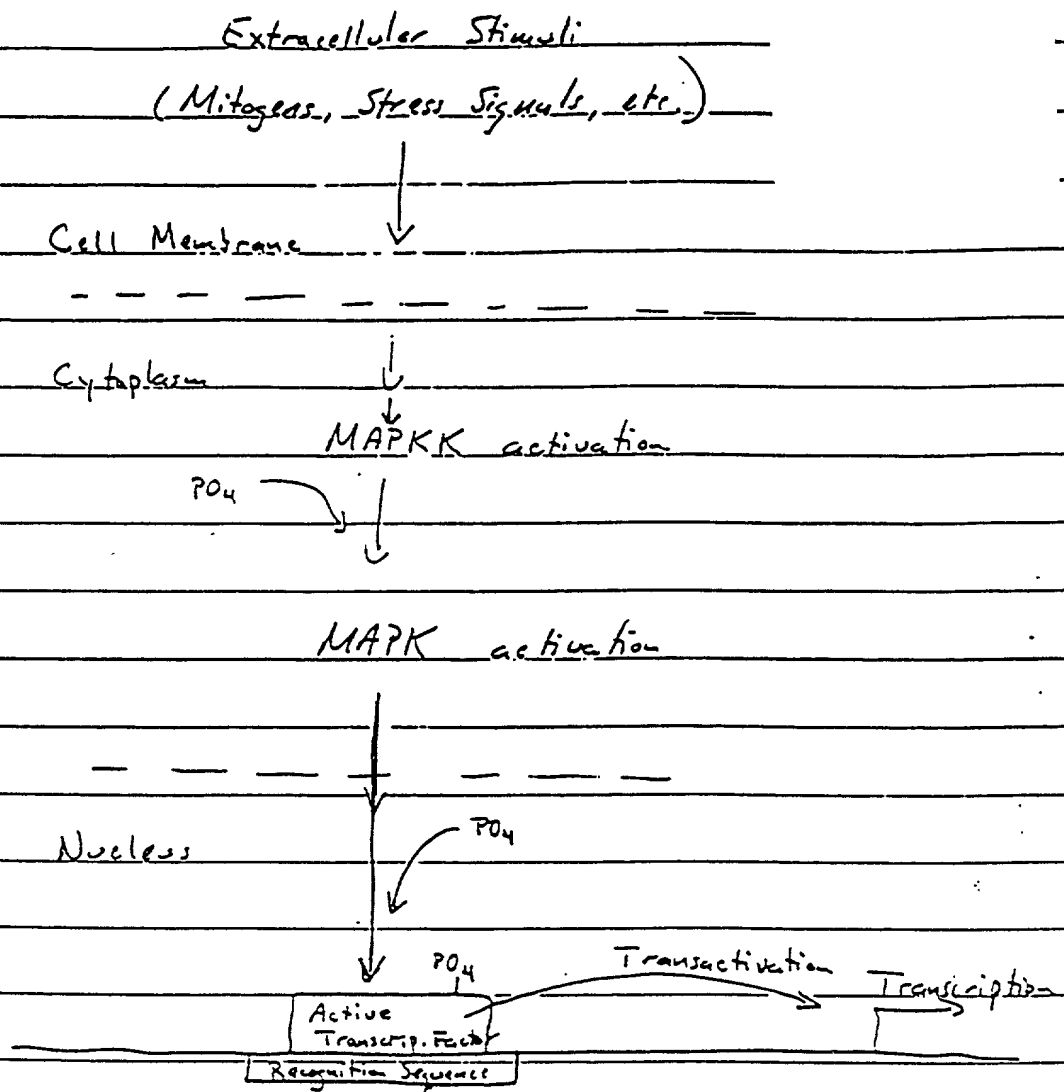 Extracellular Stimuli
(Mitogens, Stress Signals, etc.)
Cell Membrane
Cytoplasm
MAPKK activation
PO4
MAPK activation
Nucleus
PO4
PO4
Transactivation
Transcription
Active
Transcrip. Factor
Recognition Sequence